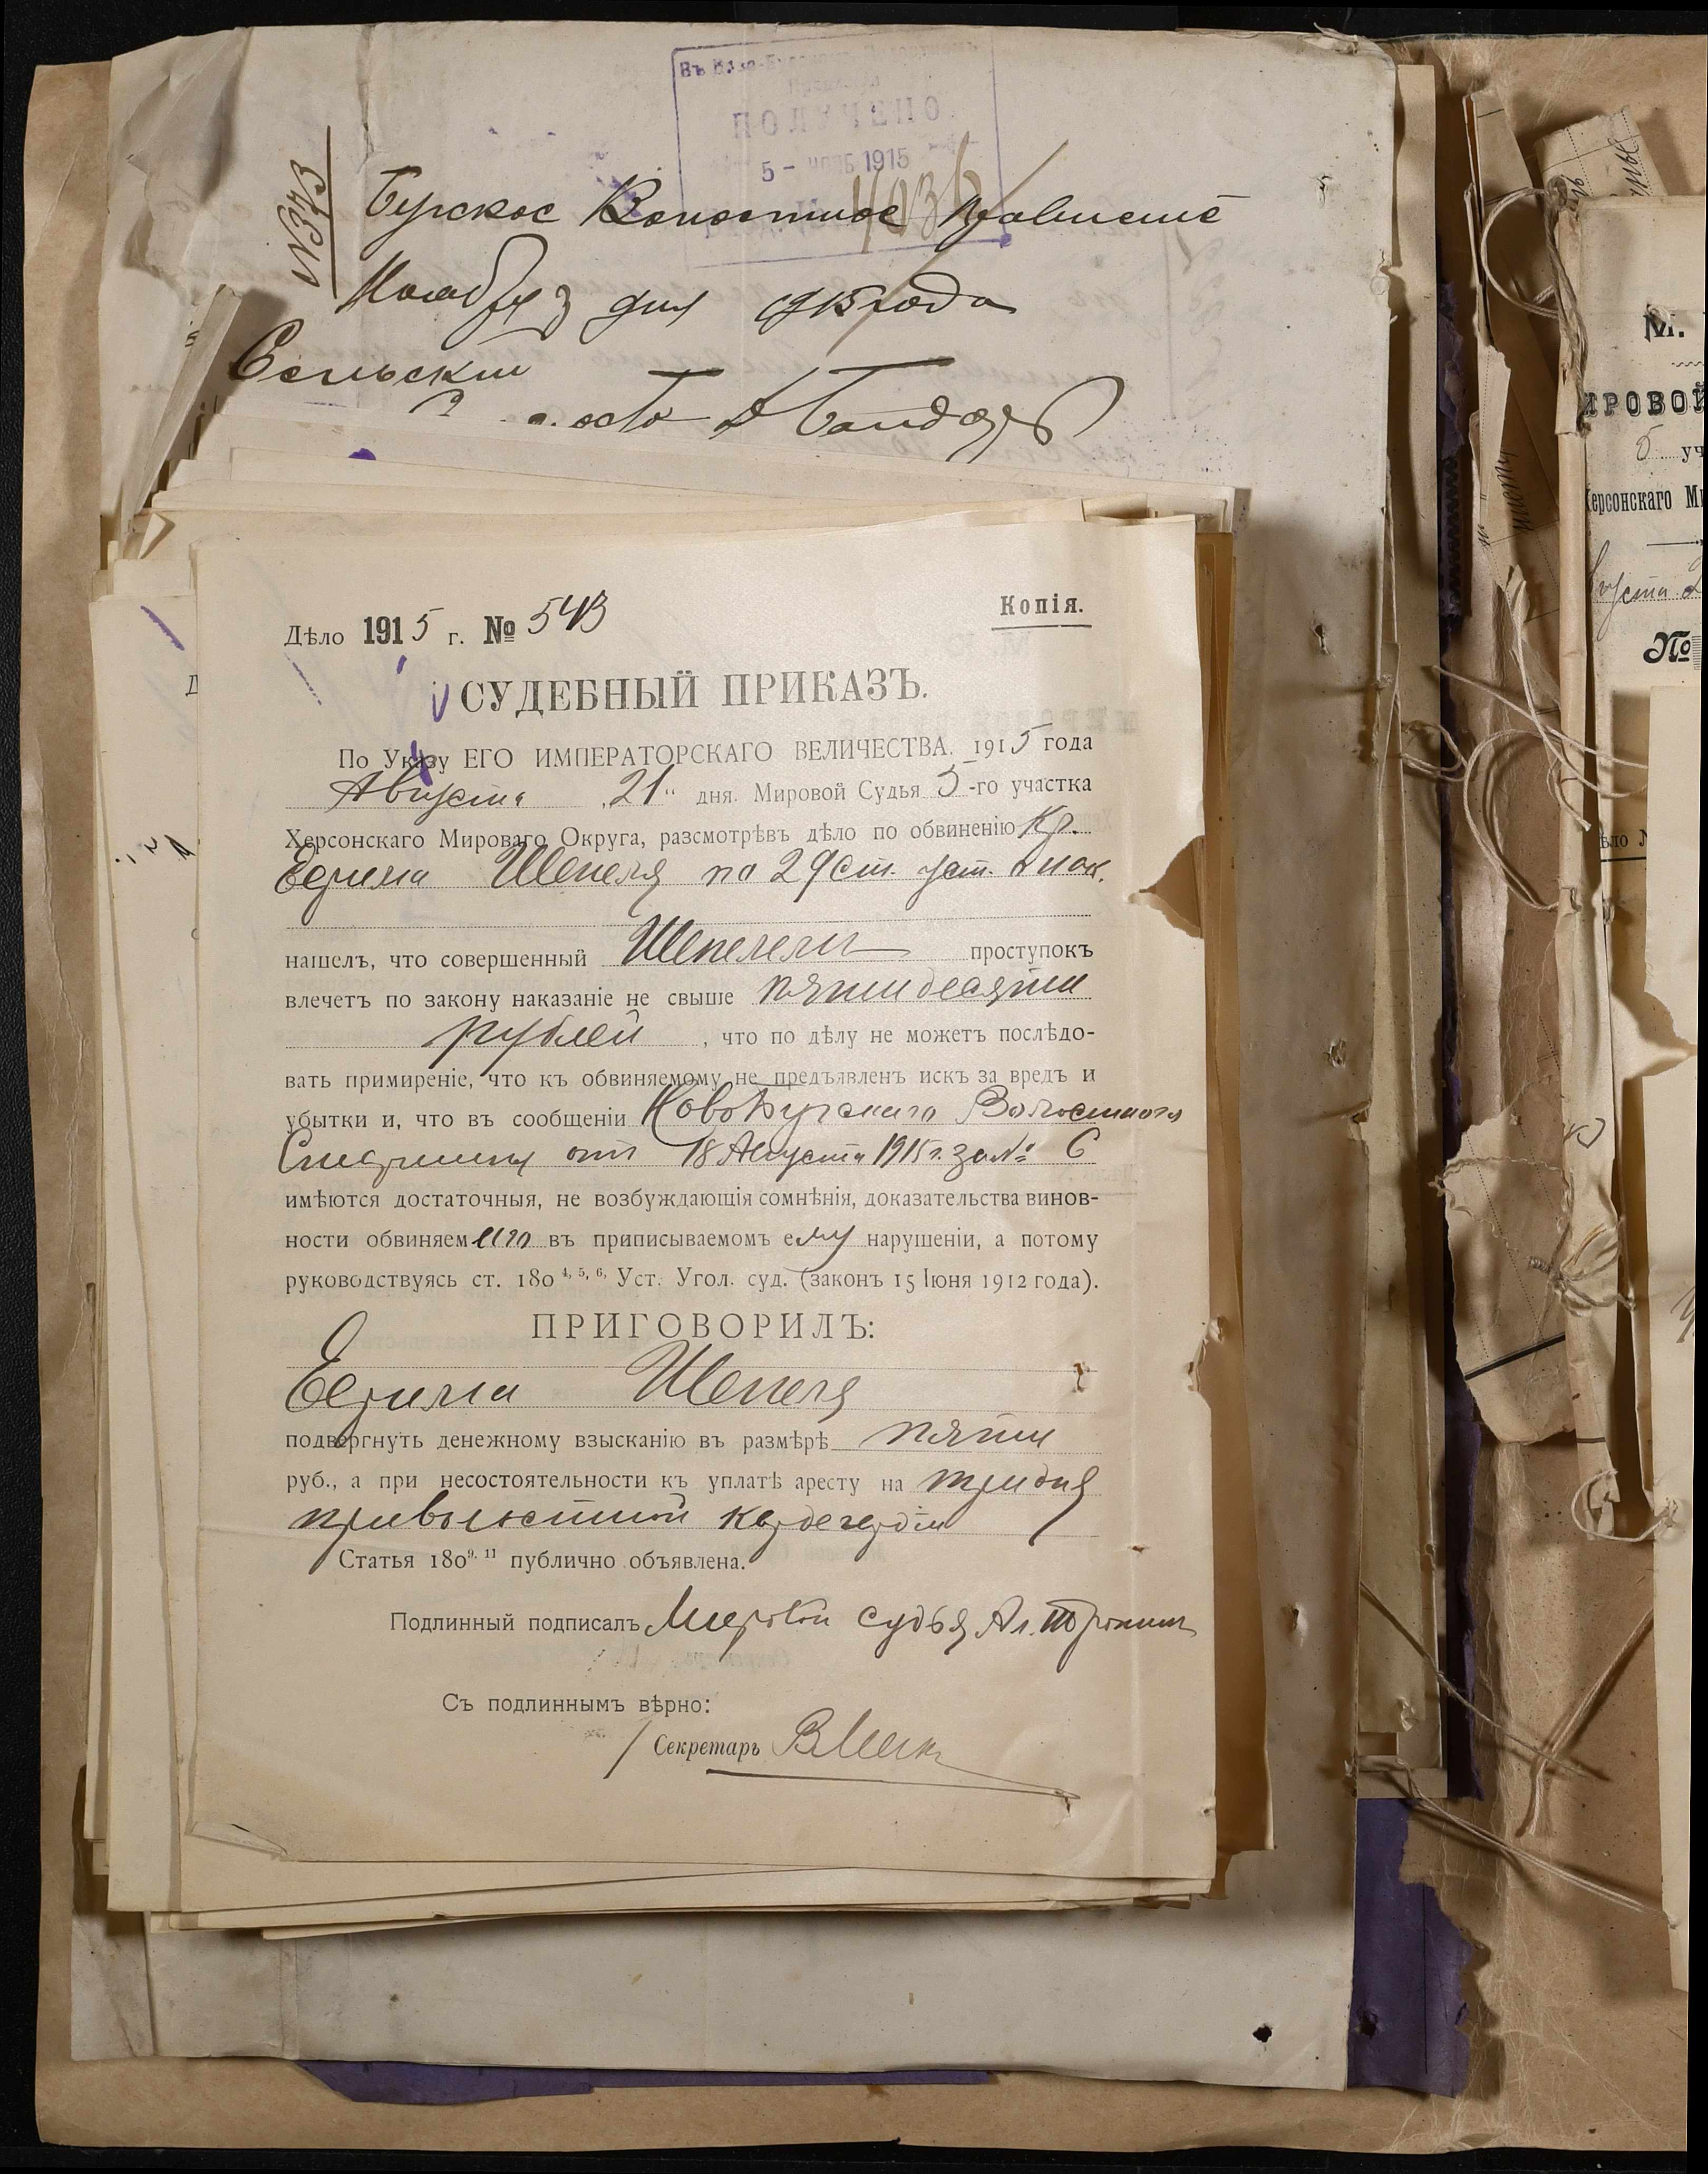 ПОЛУЧЕНО
5 - 1915
№373
Бугское Волостное Правление
Ноября 3 дня 1915 года
Сельский
Староста
Копія.
Дѣло 1915 г. № 543
СУДЕБНЫЙ ПРИКАЗЪ.
По Указу ЕГО ИМПЕРАТОРСКАГО ВЕЛИЧЕСТВА. 1915 года
Августа „21“ дня. Мировой Судья 5-го участка
Херсонскаго Мироваго Округа, разсмотрѣвъ дѣло по обвиненію Кр.
Ефима Шепеля по 29 ст. уст. о нак.
нашелъ, что совершенный Шепелем проступокъ
влечетъ по закону наказаніе не свыше пятидесяти
рублей, что по дѣлу не можетъ послѣдо-
вать примиреніе, что къ обвиняемому не предъявленъ искъ за вредъ и
убытки и, что въ сообщеніи НовоБугскаго Волостного
Старшины от 18 Августа 1915 г. за № 6
имѣются достаточныя, не возбуждающія сомнѣнія, доказательства винов-
ности обвиняемаго въ приписываемомъ ему нарушеніи, а потому
руководствуясь ст. 180 4, 5, 6, Уст. Угол. суд. (законъ 15 Іюня 1912 года).
ПРИГОВОРИЛЪ:
Ефима Шепеля
подвергнуть денежному взысканію въ размѣрѣ пяти
руб., а при несостоятельности къ уплатѣ аресту на три дня
при волостной
Статья 180 9, 11 публично объявлена.
Подлинный подписалъ Мировой судья Ал.
Съ подлиннымъ вѣрно:
Секретарь
М.
ИРОВОЙ
уч
Херсонскаго М
вгуста
№
ѣло №